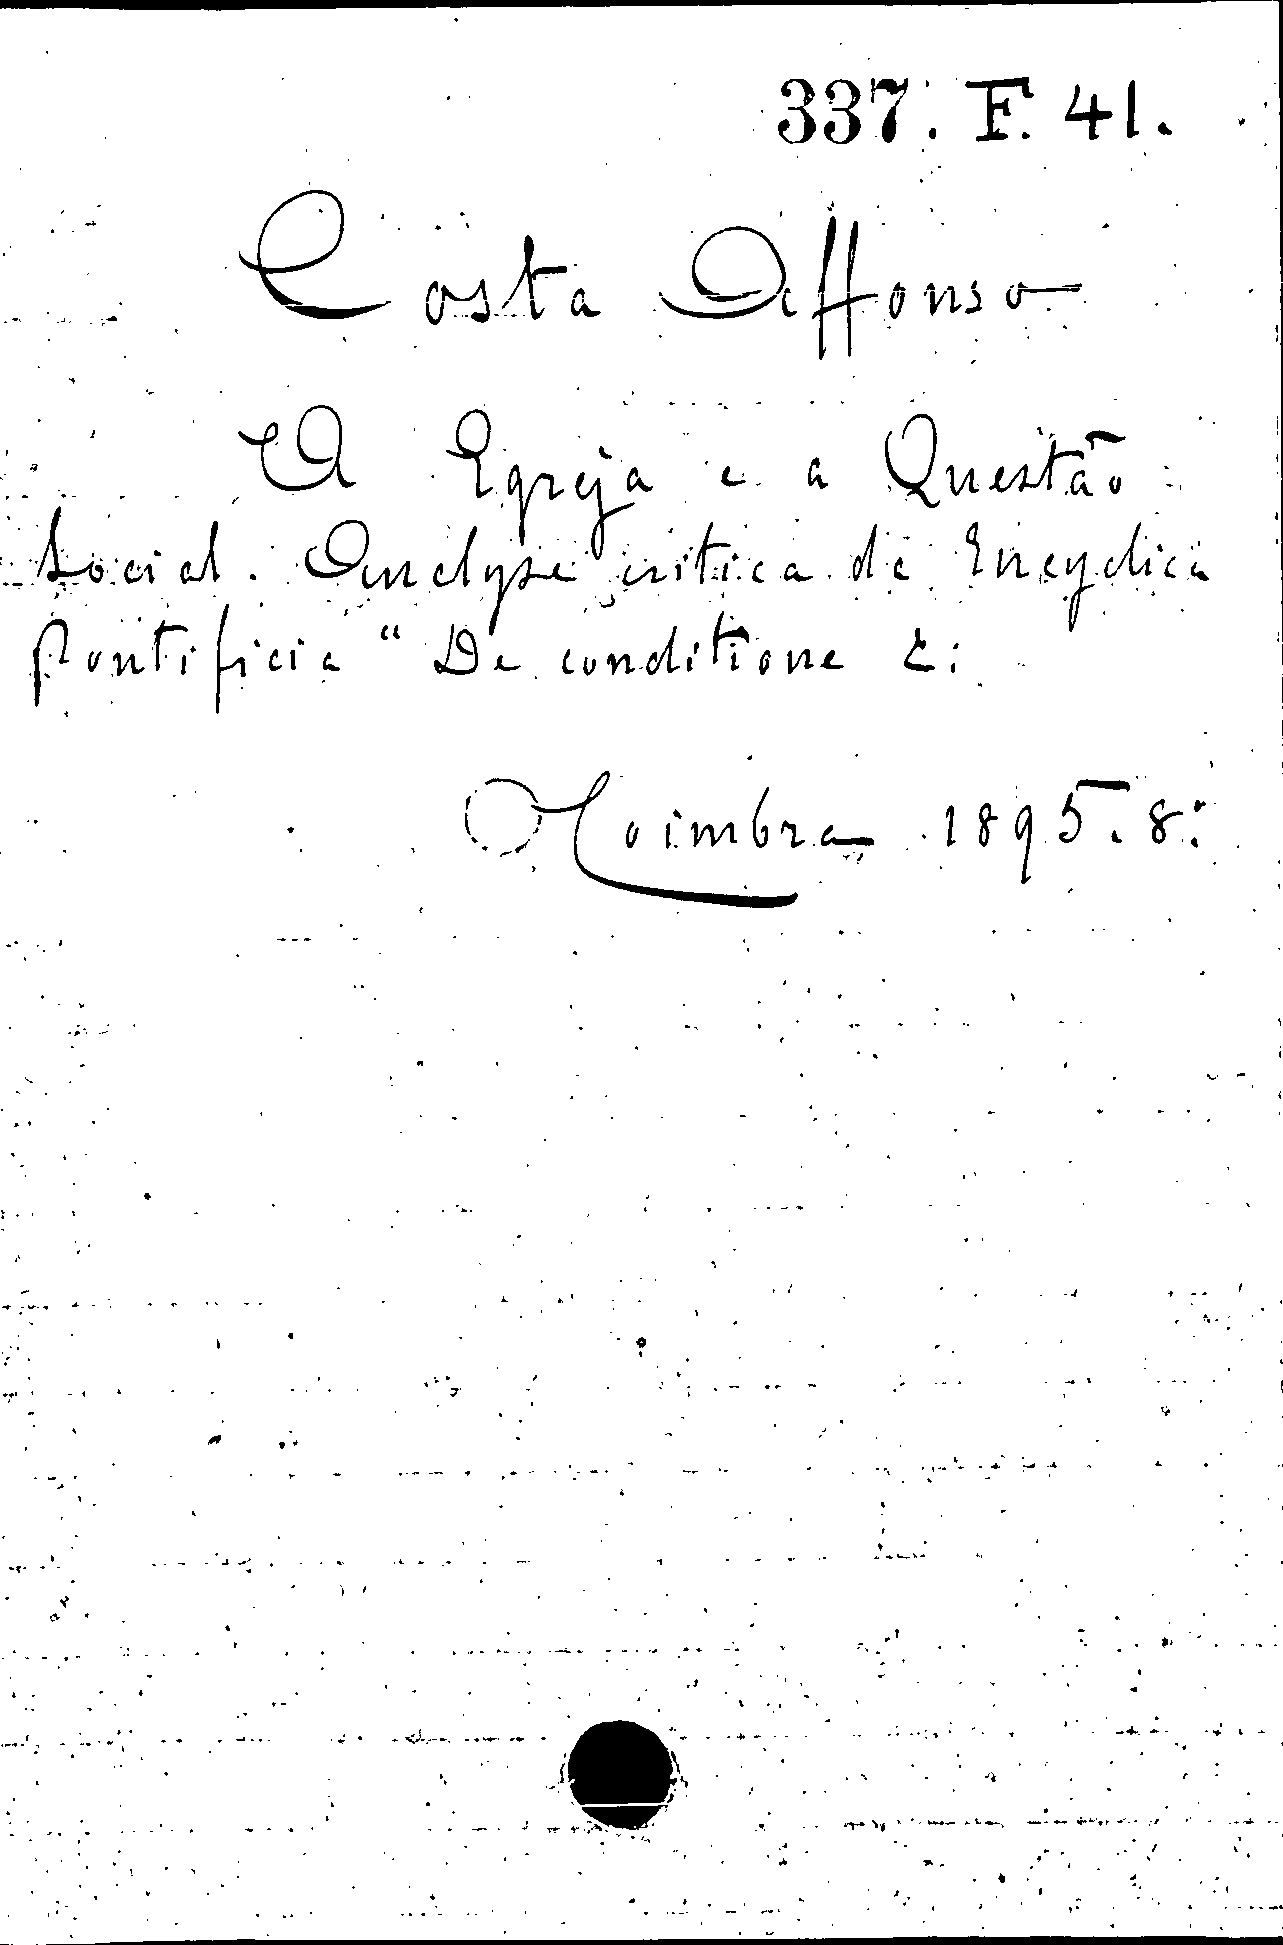 337. F. 41.
Costa Affonso
A Egreja e a Questão
Social. Analyse critica da Encyclica
Pontificia "De conditione &:
Coimbra 1895. 8º